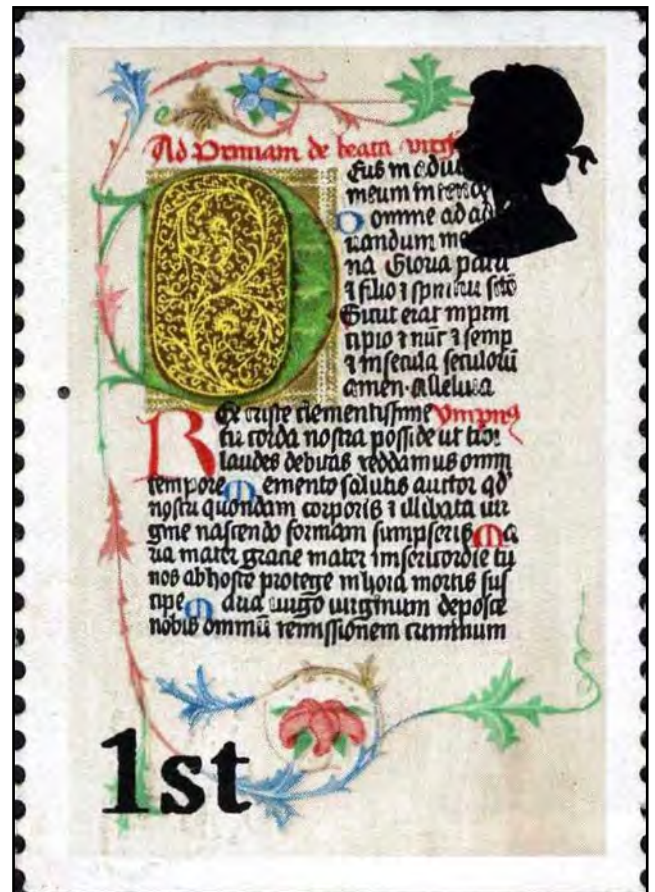 Ad Primam de beata virg
Deus in adiu
meum inten
Domine ad ad
iuuandum me
na Gloria patri
⁊ filio ⁊ spiritui scto
Sicut erat in prin
cipio ⁊ nunc ⁊ semp
⁊ in secula seculorū
amen. Alleluia
Rex criste clementissime
tu corda nostra posside ut tibi
laudes debitas reddamus omni
tempore Memento salutis auctor qd'
nostri quondam corporis ⁊ illibata uir
gine nascendo formam sumpseris Ma
ria mater gracie mater misericordie tu
nos ab hoste protege in hora mortis sus
cipe Maria uirgo uirginum deposce
nobis omniū remissionem criminum
1st